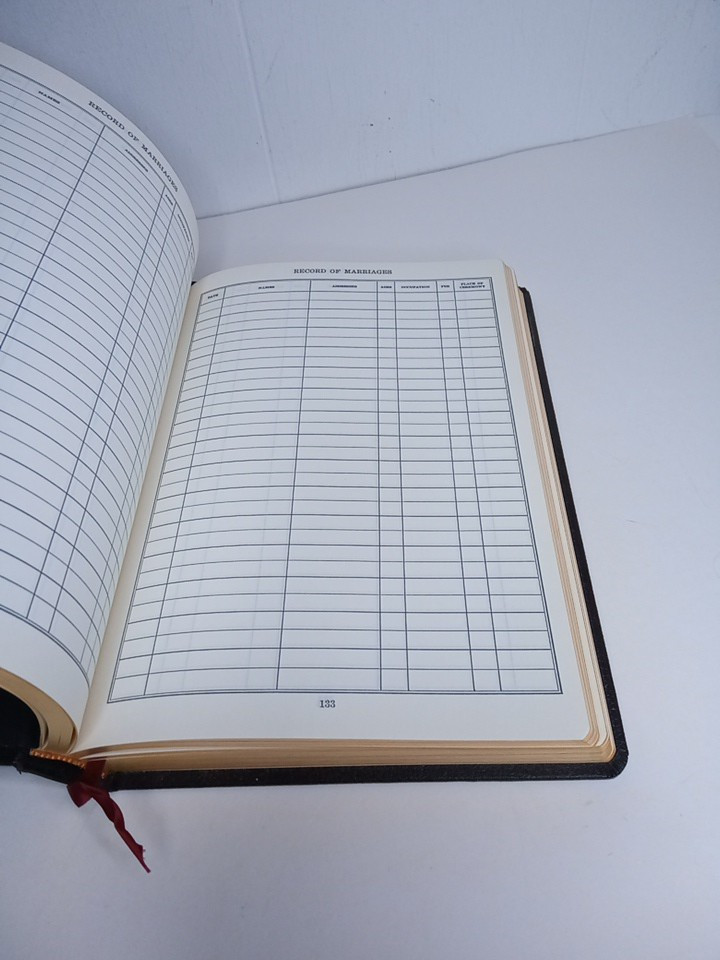 NAMES
RECORD OF MARRIAGES
ADDRESSES
RECORD OF MARRIAGES
DATE NAMES ADDRESSES AGES OCCUPATION FEE PLACE OF CEREMONY
133